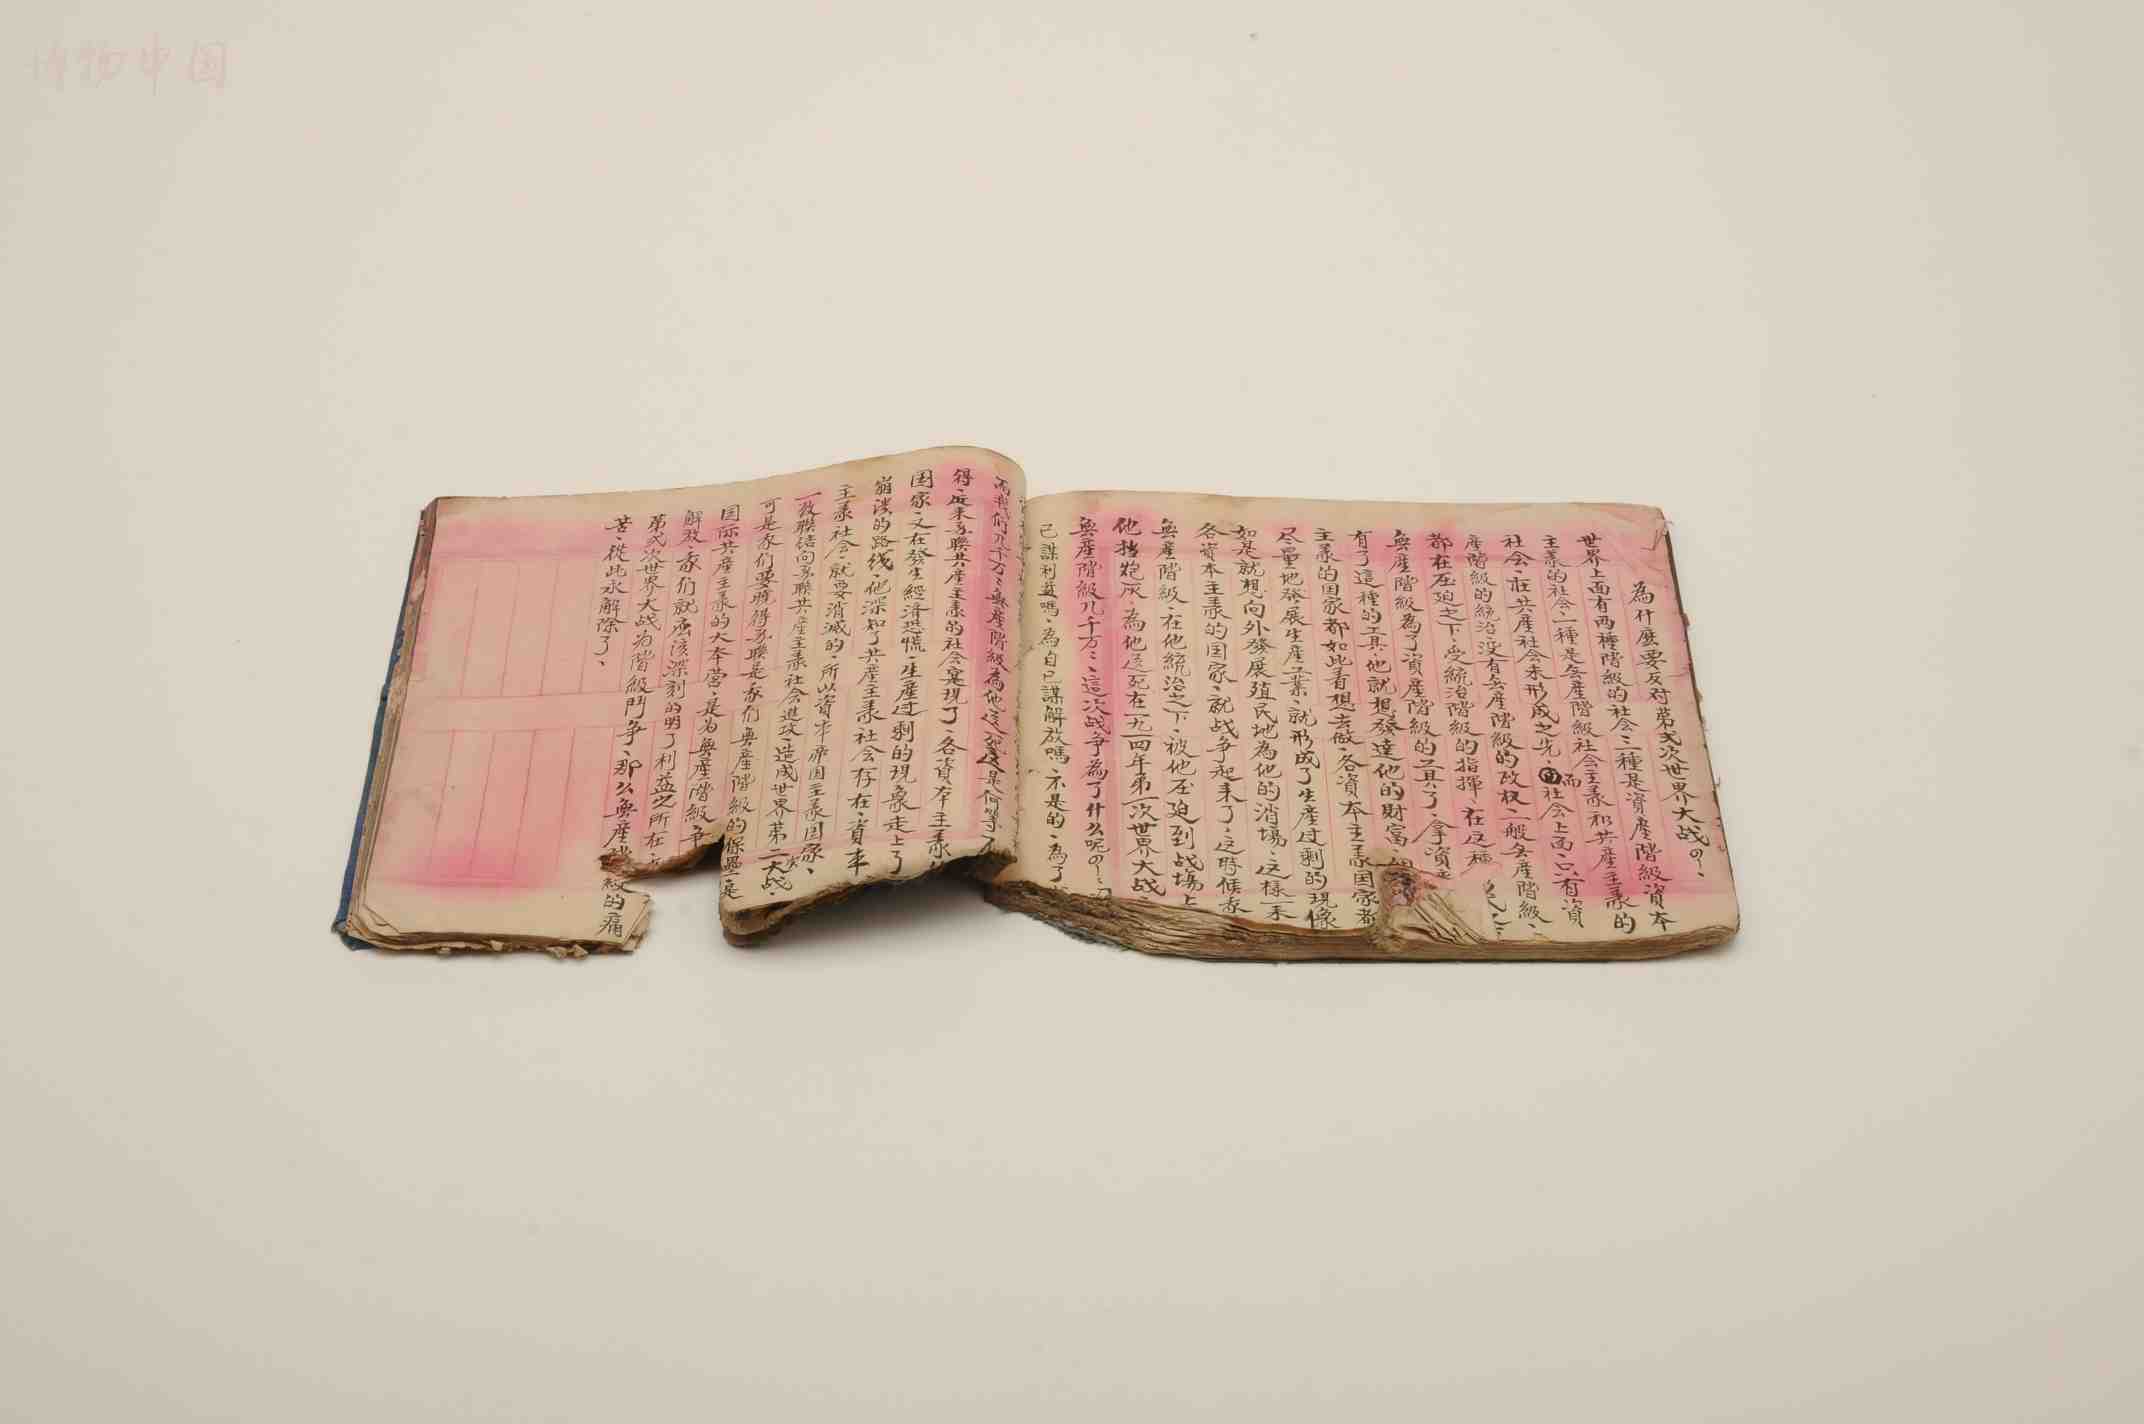 博物中国
為什麽要反对第弍次世界大战?
世界上面有两種階級的社会:一種是資產階級資本
主義的社会,一種是無產階級社会主義和共產主義的
社会,在共產社会未形成之先,而社会上面只有資
產階級的統治没有無產階級的政权,一般無產階級、
都在压迫之下,受統治階級的指揮,在这種
無產階級為了資產階級的工具了,拿資
有了這種的工具,他就想發達他的財富,
主義的国家都如此着想去做,各資本主義国家者
尽量地發展生產業,就形成了生產过剩的現像
如是就想向外發展殖民地為他的消場,这樣一来
各資本主義的国家,就战争起来了,这時候
無產階級,在他統治之下,被他压迫到战場上
他挡炮灰,為他送死在一九一四年第一次世界大战,
無產階級几千万,這次战争為了什么呢?
已謀利益嗎,為自已謀解放嗎,不是的,為了
而我們几千万無產階級為他送死是何等
得,近来苏聯共產主義的社会寔現了,各資本主義
国家,又在發生經濟恐慌,生產过剩的現象走上了
崩潰的路线,他深知了共產主義社会存在,資本
主義社会,就要消滅的,所以資本帝国主義国家、
一致聯结向苏聯共產主義社会進攻,造成世界第二次大战,
可是我們要晓得苏聯是我們無產階級的保壘是
国际共產主義的大本营,是为無產階級争
解放,我們就应该深刻的明了利益之所在
第弍次世界大战为階級鬥争、那么無產階級的痛
苦,從此永解除了、